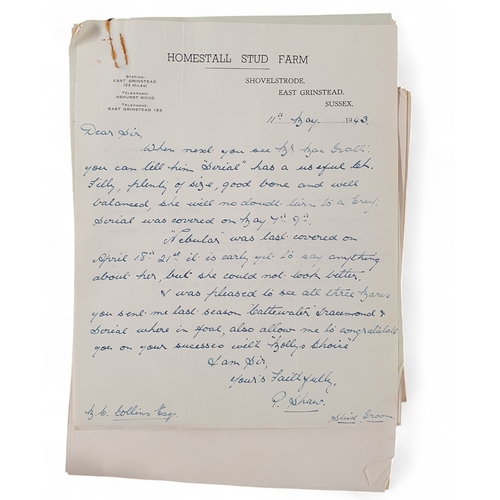 HOMESTALL STUD FARM
STATION:
EAST GRINSTEAD
(2½ MILES)
TELEGRAMS:
ASHURST WOOD
TELEPHONE:
EAST GRINSTEAD 153
SHOVELSTRODE,
EAST GRINSTEAD,
SUSSEX.
11th May 1943.
Dear Sir,
When next you see Mr Mac Grath
you can tell him "Serial" has a useful ch.
filly, plenty of size, good bone and well
balanced, she will no doubt turn to a Grey,
Serial was covered on May 7th 9th.
"Nebular" was last covered on
April 18th 21st it is early yet to say anything
about her, but she could not look better.
I was pleased to see all three Mares
you sent me last season "Cattewater" &
Serial where in foal, also allow me to congratulate
you on your sucesses with "Mollys Choice"
I am Sir,
Your's Faithfully,
P. Shaw.
Stud Groom
Collins Esq.